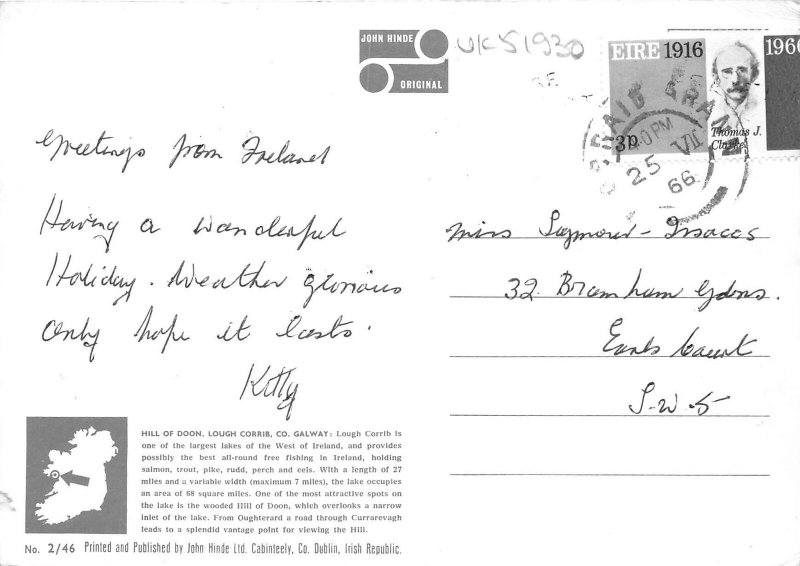 JOHN HINDE
ORIGINAL
UKS1930
EIRE 1916
1966
Thomas J.
Clarke
3p
PM
25 VII
66
Greetings from Ireland
Having a wonderful
Holiday. Weather glorious
only hope it lasts.
Kitty
Miss Seymour-Issacs
32 Bramham Gdns.
Earls Court
S.W.5
HILL OF DOON, LOUGH CORRIB, CO. GALWAY: Lough Corrib is
one of the largest lakes of the West of Ireland, and provides
possibly the best all-round free fishing in Ireland, holding
salmon, trout, pike, rudd, perch and eels. With a length of 27
miles and a variable width (maximum 7 miles), the lake occupies
an area of 68 square miles. One of the most attractive spots on
the lake is the wooded Hill of Doon, which overlooks a narrow
inlet of the lake. From Oughterard a road through Currarevagh
leads to a splendid vantage point for viewing the Hill.
No. 2/46 Printed and Published by John Hinde Ltd. Cabinteely, Co. Dublin, Irish Republic.